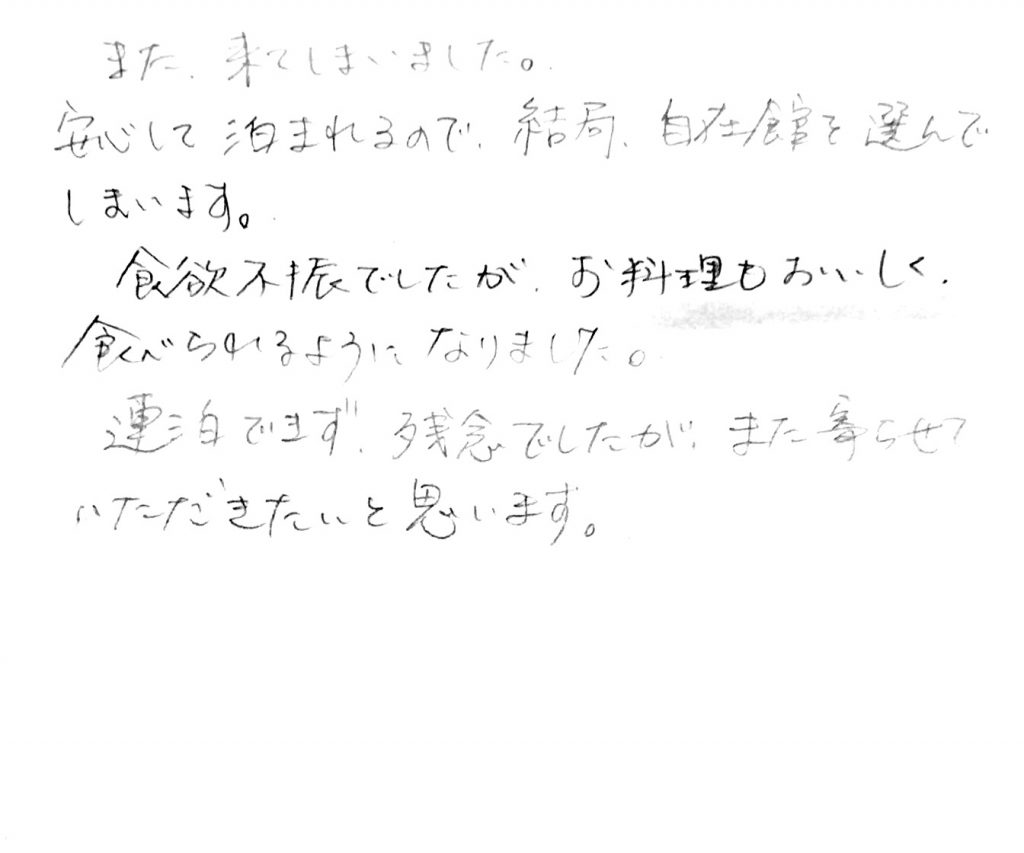 また、来てしまいました。
安心して泊まれるので、結局、自在館を選んで
しまいます。
食欲不振でしたが、お料理もおいしく、
食べられるようになりました。
連泊できず、残念でしたが、また寄らせて
いただきたいと思います。